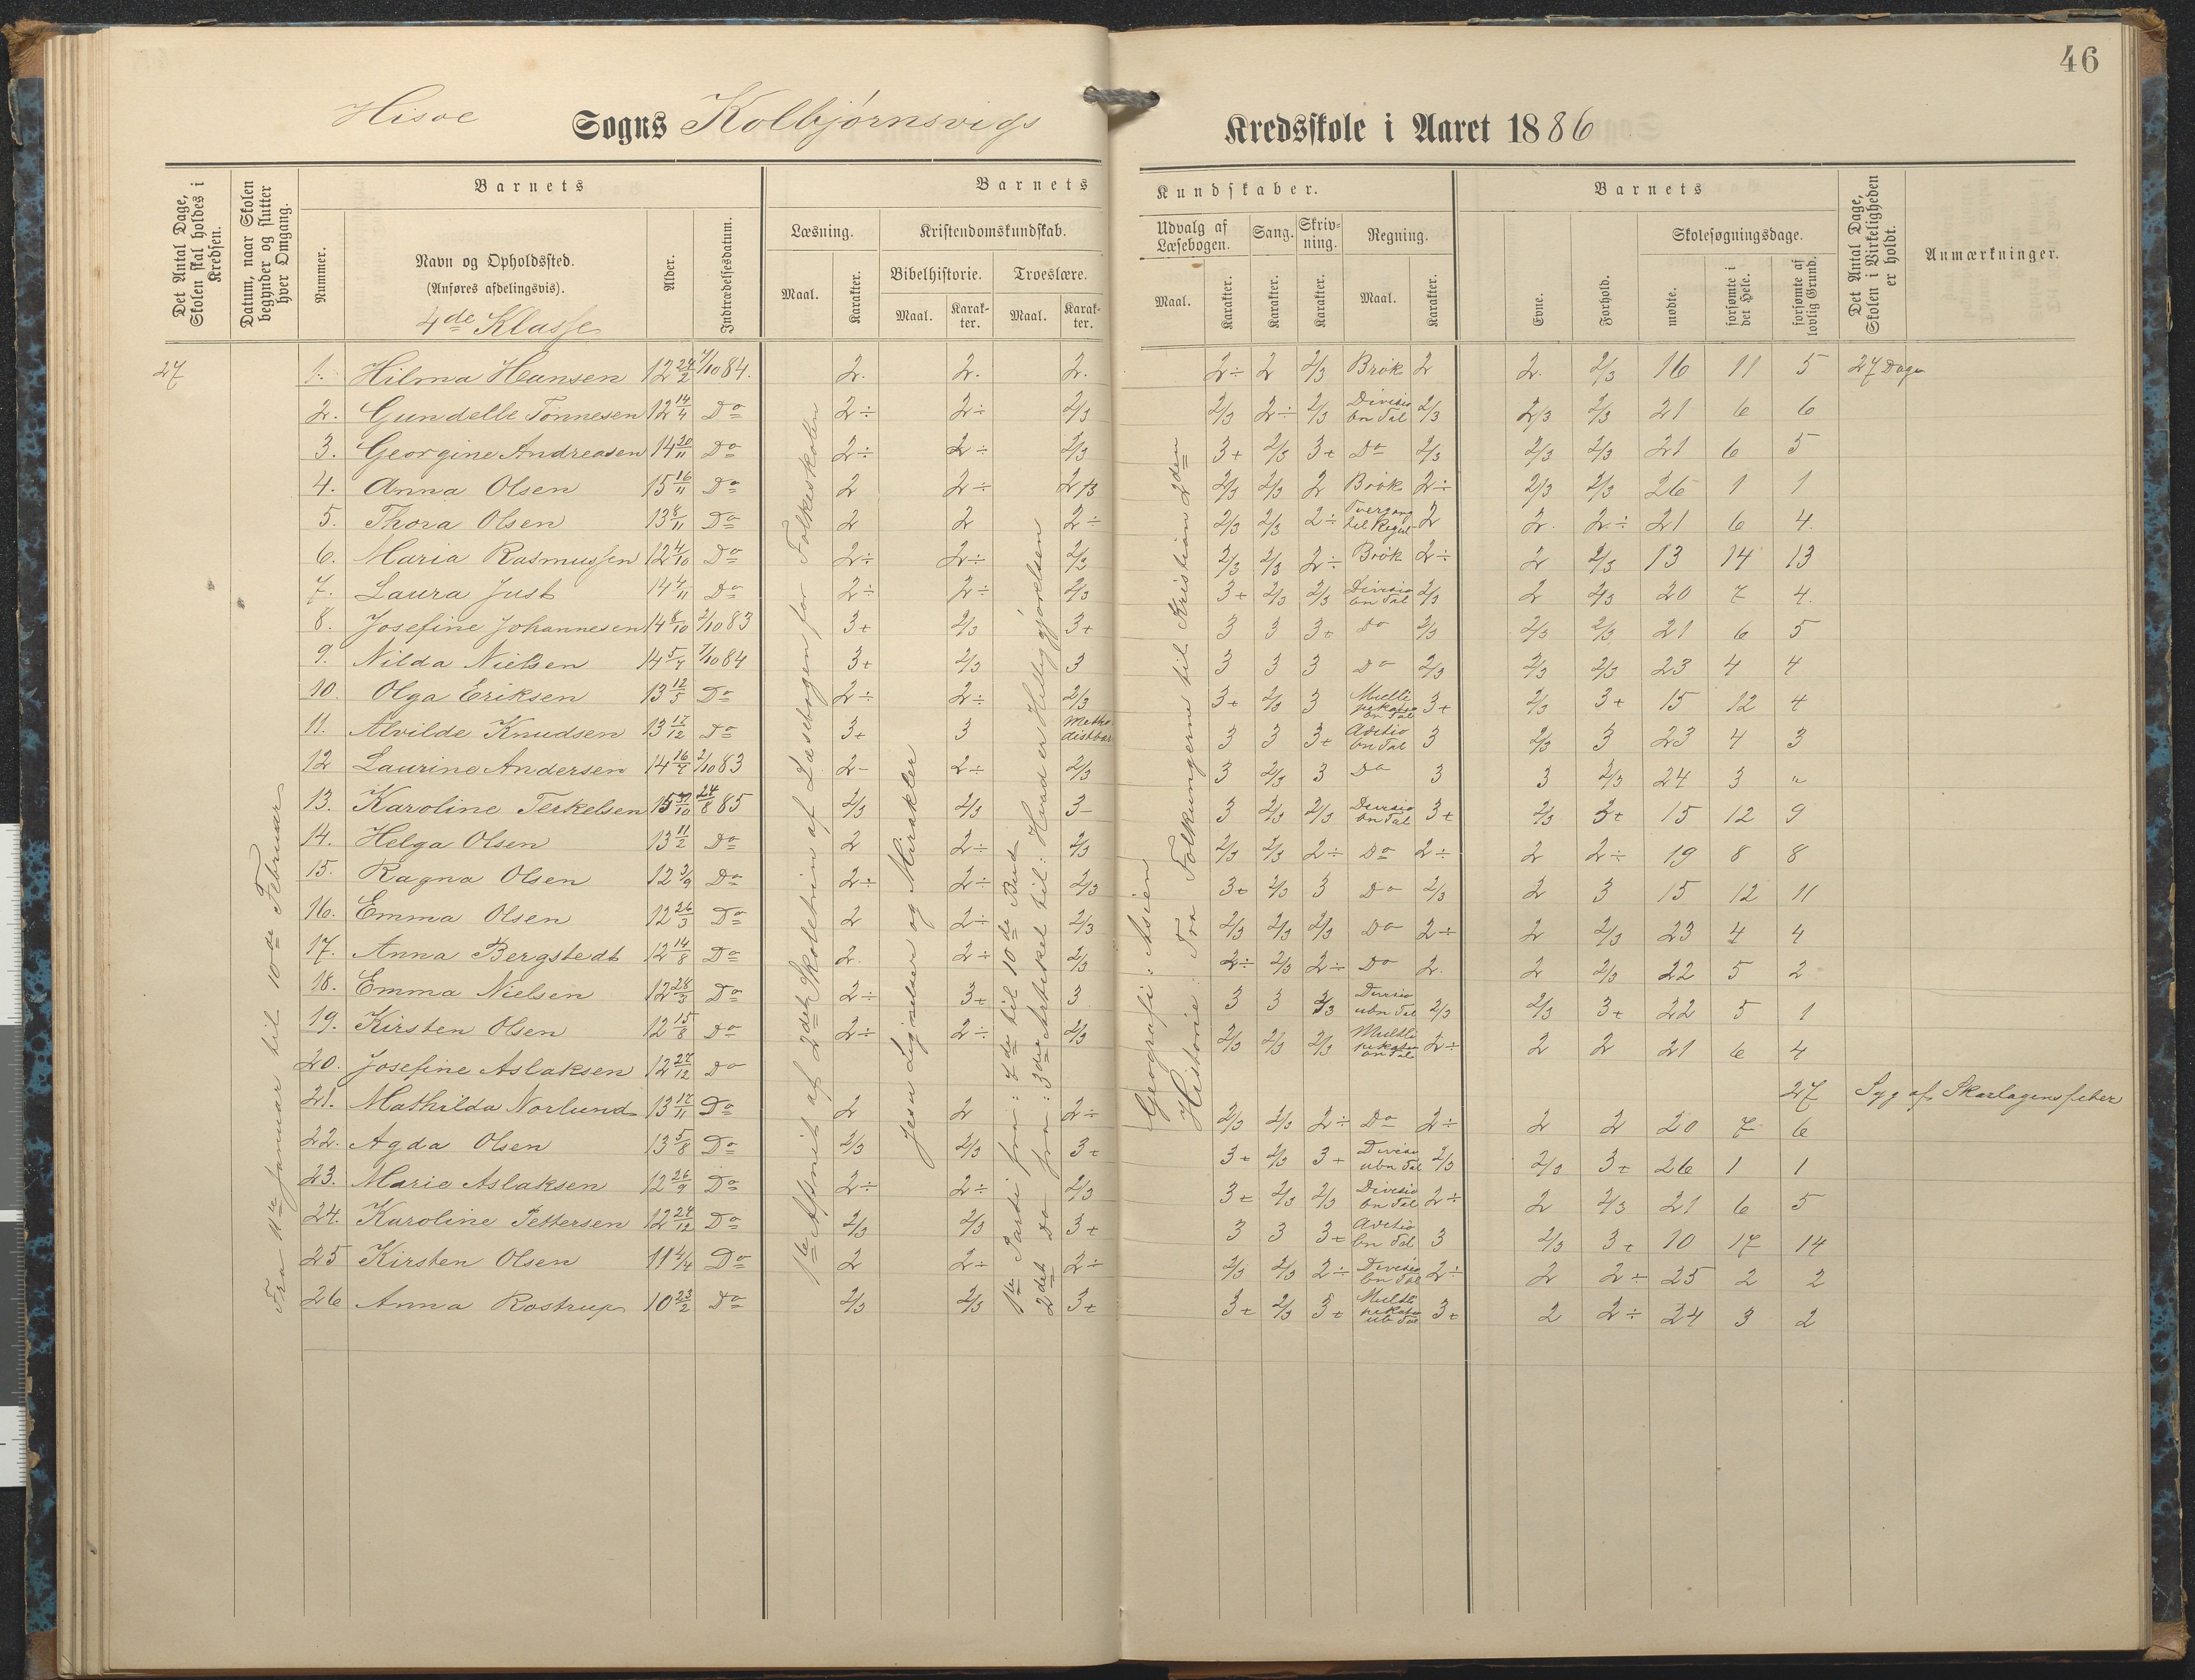 46
Hisoe Sogns Kolbjørnsvigs Kredsskole i Aaret 1886
Det Antal Dage, Skolen skal holdes i Kredsen.
Datum, naar Skolen begynder og slutter hver Omgang.
Barnets
Nummer.
Navn og Opholdssted.
(Anføres afdelingsvis).
4de Klasse
Alder.
Indtrædelsesdatum.
Barnets Kundskaber.
Læsning.
Maal.
Karakter.
Kristendomskundskab.
Bibelhistorie.
Maal.
Karakter.
Troeslære.
Maal.
Karakter.
Udvalg af Læsebogen.
Maal.
Karakter.
Sang.
Karakter.
Skrivning.
Karakter.
Regning.
Maal.
Karakter.
Barnets
Evne.
Forhold.
Skolesøgningsdage.
mødte.
forsømte i det Hele.
forsømte af lovlig Grund.
Det Antal Dage, Skolen i Virkeligheden er holdt.
Anmærkninger.
27
Fra 11te Januar til 10de Februar
1ste Afsnit af 2det Skoletrin af Læsebogen for Folkeskolen
Jesu Lignelser og Mirakler
1ste Parti fra: 4de til 10de Bud
2det Do fra: 3die Artikel til: Hvad er Helliggjørelsen
Geografi: Asien
Historie: Fra Folkungerne til Kristian 2den
1. Hilma Hansen 12 24/2 7/10 84. 2. 2. 2. 2÷ 2 2/3 Brøk 2 2. 2/3 16 11 5 27 Dage
2. Gundelle Tønnesen 12 14/4 Do 2÷ 2÷ 2/3 2/3 2÷ 2/3 Divisio bn Tal 2/3 2/3 2/3 21 6 6
3. Georgine Andreasen 14 20/11 Do 2÷ 2÷ 2/3 3+ 2/3 3+ Do 2/3 2/3 2/3 21 6 5
4. Anna Olsen 15 16/11 Do 2 2÷ 2/3 2/3 2/3 2 Brøk 2÷ 2/3 2/3 26 1 1
5. Thora Olsen 13 8/11 Do 2 2 2÷ 2/3 2/3 2÷ 2 2. 2÷ 21 6 4.
6. Maria Rasmussen 12 4/10 Do 2÷ 2÷ 2/3 2/3 2/3 2÷ Brøk 2÷ 2 2/3 13 14 13
7. Laura Just 14 4/11 Do 2÷ 2÷ 2/3 3+ 2/3 2/3 Divisio bn Tal 2/3 2 2/3 20 7 4.
8. Josefine Johannesen 14 8/10 2/10 83 3+ 2/3 3+ 3 3 3+ Do 2/3 2/3 2/3 21 6 5
9. Nilda Nielsen 14 5/7 7/10 84 3+ 2/3 3 3 3 3 Do 2/3 2/3 2/3 23 4 4
10. Olga Eriksen 13 12/5 Do 2÷ 2÷ 2/3 3+ 2/3 3 Multi pikatio bn Tal 3+ 2/3 3+ 15 12 4
11. Alvilde Knudsen 13 17/12 Do 3+ 3 Metho distbar 3 3 3+ Aditio bn Tal 3 2/3 3 23 4 3
12 Laurine Andersen 14 16/7 2/10 83 2- 2÷ 2/3 3 2/3 3 Do 3 3 2/3 24 3 "
13. Karoline Terkelsen 15 /10 24/8 85 2/3 2/3 3- 3 2/3 2/3 Divisio bn Tal 3+ 2/3 3+ 15 12 9
14. Helga Olsen 13 11/2 Do 2 2÷ 2/3 2/3 2/3 2÷ Do 2÷ 2 2÷ 19 8 8
15. Ragna Olsen 12 3/9 Do 2÷ 2÷ 2/3 3+ 2/3 3 Do 2/3 2 3 15 12 11
16. Emma Olsen 12 26/3 Do 2 2÷ 2/3 2/3 2/3 2/3 Do 2÷ 2 2/3 23 4 4
17. Anna Bergstedt 12 14/8 Do 2. 2÷ 2/3 2÷ 2/3 2÷ Do 2. 2 2/3 22 5 2
18. Emma Nielsen 12 28/3 Do 2÷ 3+ 3 3 3 2/3 Divisio ubn Tal 2/3 2/3 3+ 22 5 1
19. Kirsten Olsen 12 15/8 Do 2÷ 2÷ 2/3 2/3 2/3 2/3 Multi pikatio bn Tal 2÷ 2 2 21 6 4
20. Josefine Aslaksen 12 27/12 Do 27 Syg af Skarlagensfeber
21. Mathilda Norlund 13 17/11 Do 2 2 2÷ 2/3 2/3 2÷ Do 2÷ 2 2 20 7 6
22. Agda Olsen 13 5/8 Do 2/3 2/3 3+ 3+ 2/3 3+ Divisio ubn Tal 2/3 2/3 3+ 26 1 1
23. Marie Aslaksen 12 26/9 Do 2÷ 2÷ 2/3 3+ 2/3 2/3 Divisio bn Tal 2÷ 2 2/3 21 6 5
24. Karoline Pettersen 12 24/12 Do 2/3 2/3 3+ 3 3 3+ Aditio bn Tal 3 2/3 3+ 10 17 14
25 Kirsten Olsen 11 4/4 Do 2 2÷ 2÷ 2/3 2/3 2÷ Divisio bn Tal 2÷ 2 2÷ 25 2 2
26 Anna Rostrup 10 23/2 Do 2/3 2/3 3+ 3+ 2/3 3+ Multi pikatio ub Tal 3+ 2 2÷ 24 3 2